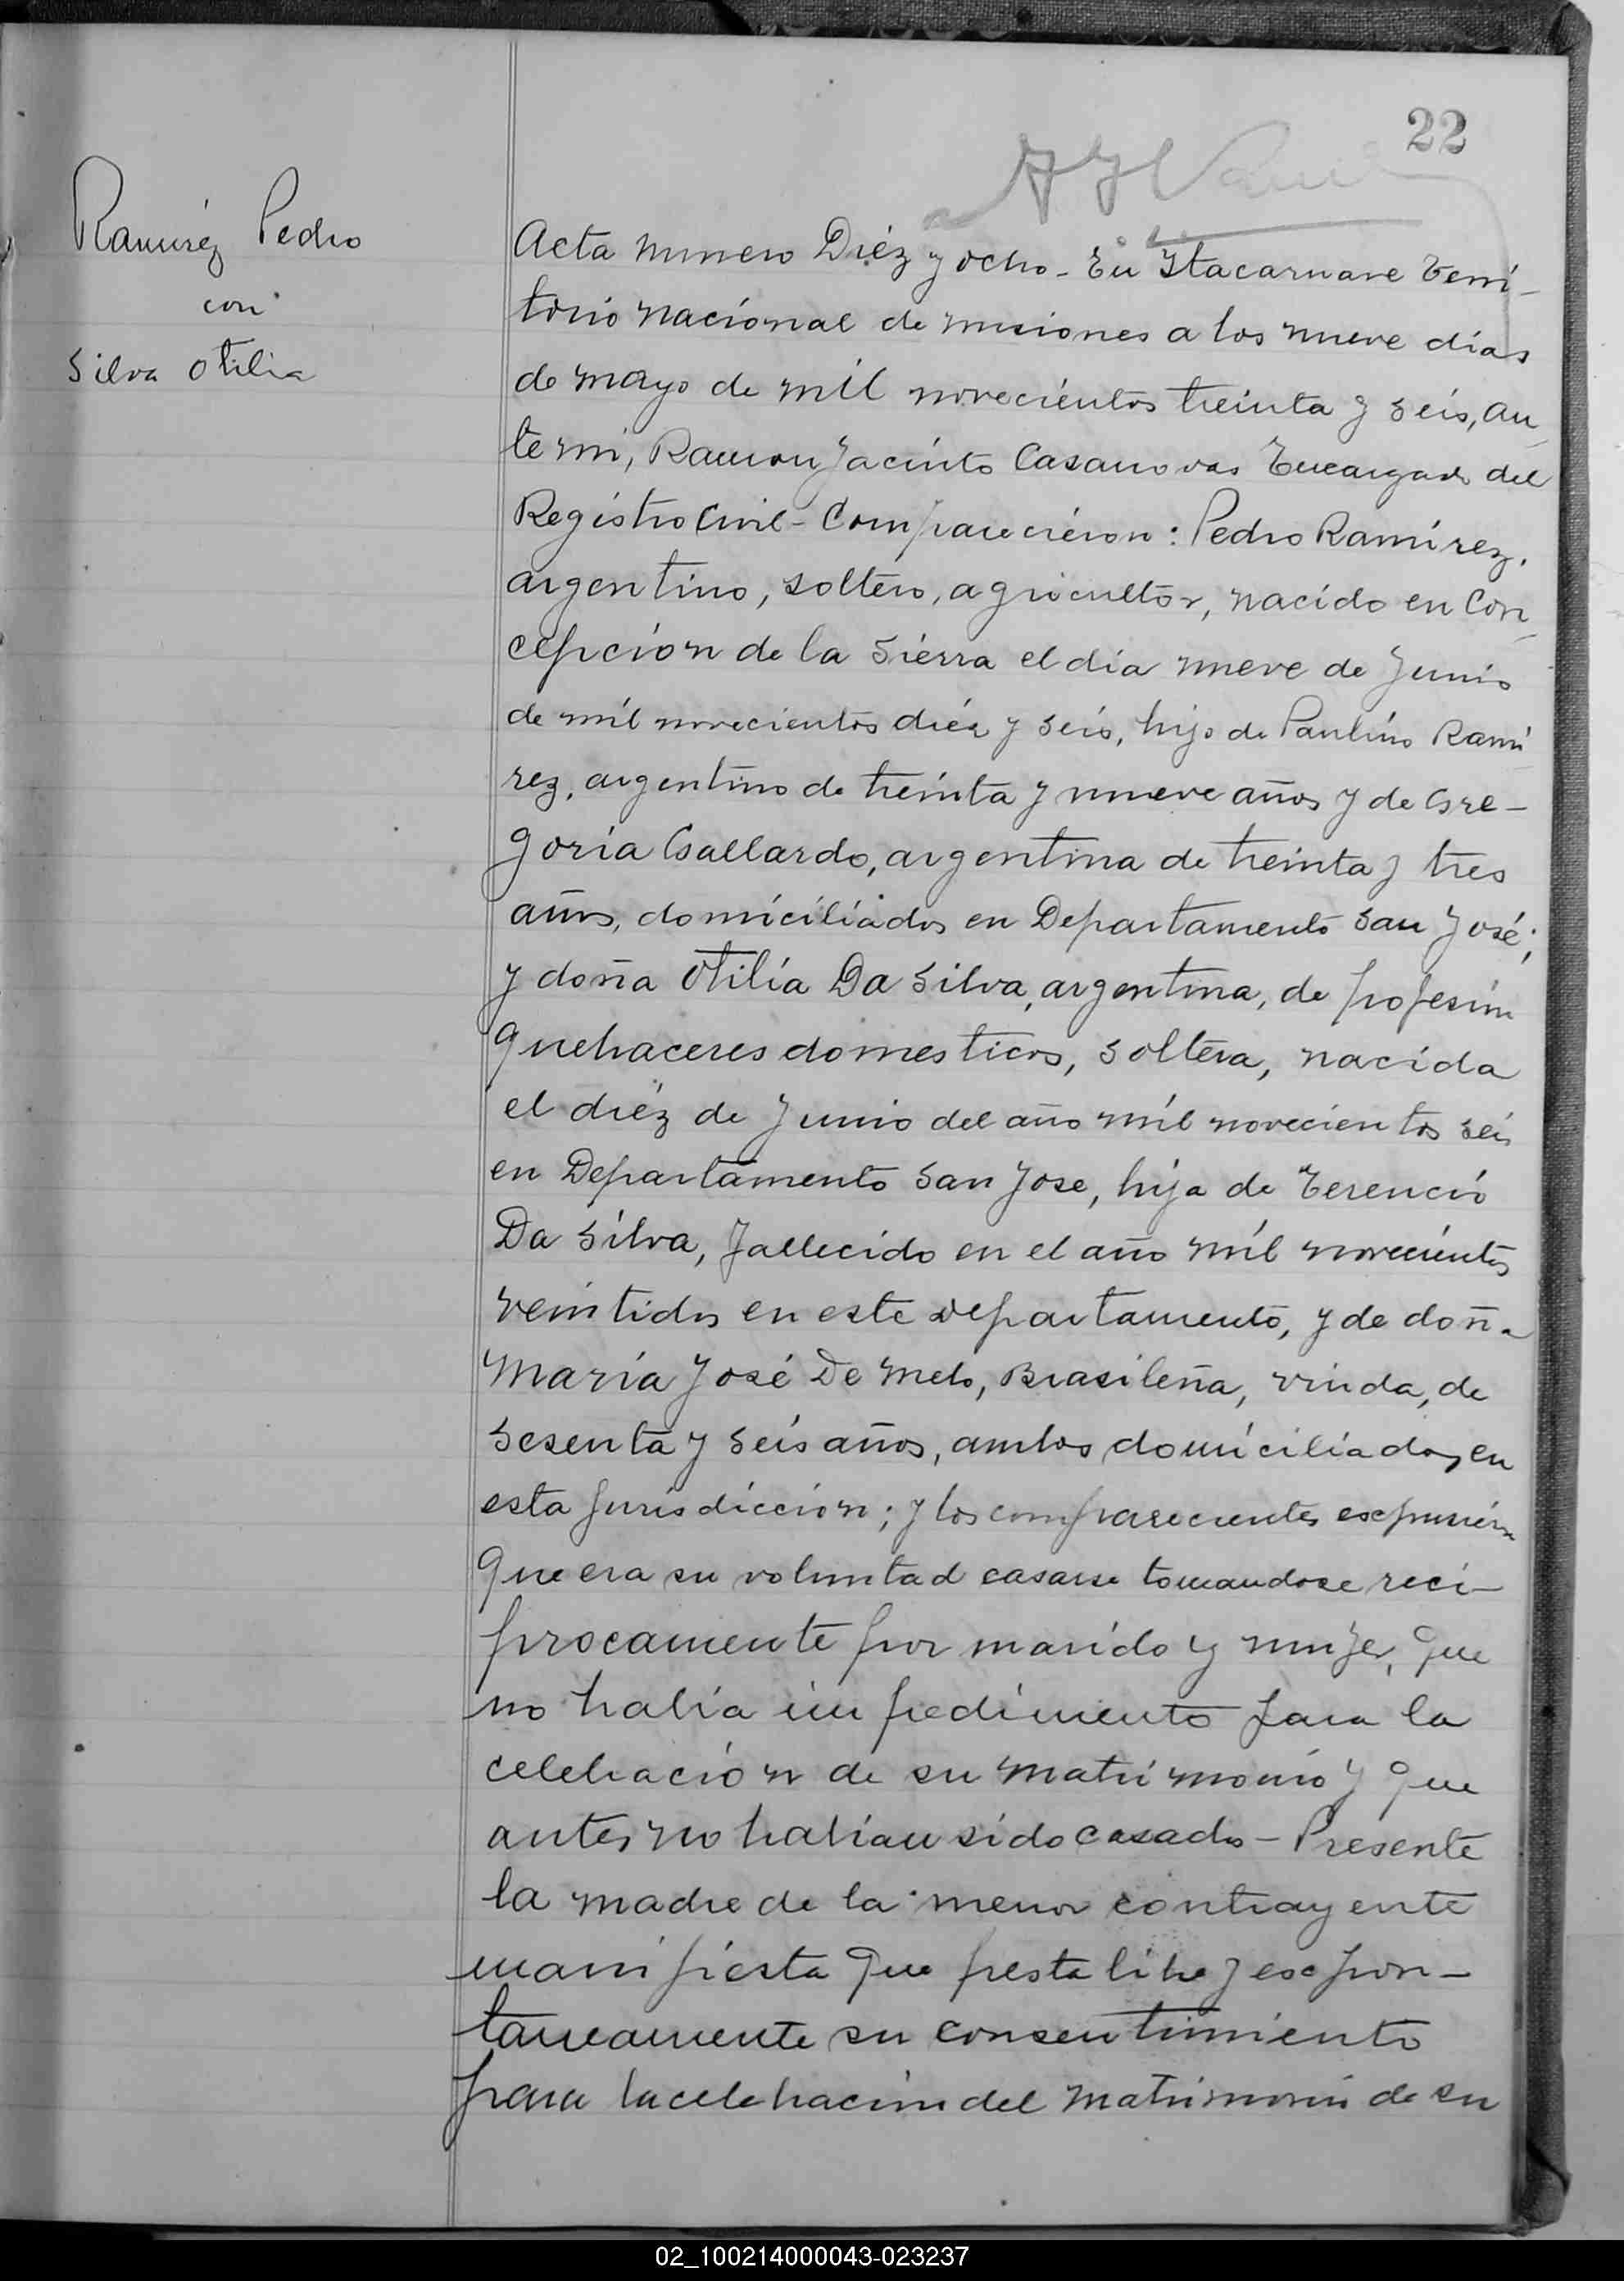 22
Ramírez Pedro
con
Silva Otilia
Acta numero Diéz y ocho - En Itacaruare Terri-
torio nacional de misiones a los nueve días
de mayo de mil novecientos treinta y seis, an-
te mi, Ramon Jacinto Casanovas Encargado del
Registro Civil - Comparecieron: Pedro Ramírez,
argentino, soltero, agricultor, nacido en Con-
cepción de la Sierra el día nueve de Junio
de mil novecientos diéz y seis, hijo de Paulino Rami
rez, argentino de treinta y nueve años y de Gre-
goria Gallardo, argentina de treinta y tres
años, domiciliados en Departamento San José;
y doña Otilia Da Silva, argentina, de profesión
quehaceres domesticos, soltera, nacida
el diéz de Junio del año mil novecientos seis
en Departamento San Jose, hija de Terencio
Da Silva, fallecido en el año mil novecientos
veintidos en este Departamento, y de doña
María José De Melo, Brasileña, viuda, de
sesenta y seis años, ambos domiciliados en
esta jurisdicción; y los comparecientes expusieron
que era su voluntad casarse tomandose reci-
procamente por marido y mujer, que
no había impedimento para la
celebración de su matrimonio y que
antes no habian sido casados - Presente
la madre de la menor contrayente
manifiesta que presta libre y expon-
taneamente su consentimiento
para la celebración del matrimonio de su
02_100214000043-023237